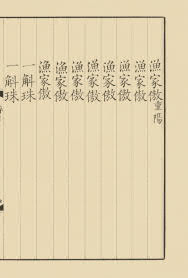 漁家傲重陽
漁家傲
漁家傲
漁家傲
漁家傲
漁家傲
漁家傲
漁家傲
一斛珠
一斛珠